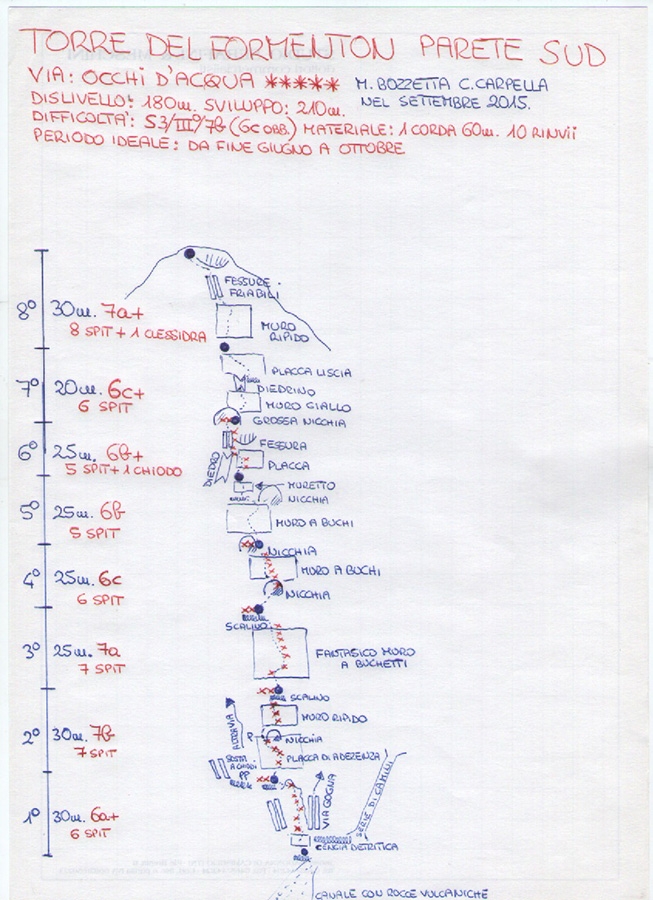 TORRE DEL FORMENTON PARETE SUD
VIA: OCCHI D'ACQUA ***** M. BOZZETTA C. CARPELLA
NEL SETTEMBRE 2015.
DISLIVELLO: 180m. SVILUPPO: 210m.
DIFFICOLTA': S3/III°/7b (6c OBB.) MATERIALE: 1 CORDA 60m. 10 RINVII
PERIODO IDEALE: DA FINE GIUGNO A OTTOBRE
FESSURE
FRIABILI
8° 30m. 7a+
8 SPIT + 1 CLESSIDRA
MURO
RIPIDO
PLACCA LISCIA
7° 20m. 6c+
6 SPIT
DIEDRINO
MURO GIALLO
GROSSA NICCHIA
6° 25m. 6b+
5 SPIT + 1 CHIODO
FESSURA
DIEDRO
PLACCA
MURETTO
NICCHIA
5° 25m. 6b
5 SPIT
MURO A BUCHI
NICCHIA
4° 25m. 6c
6 SPIT
MURO A BUCHI
NICCHIA
SCALINO
3° 25m. 7a
7 SPIT
FANTASICO MURO
A BUCHETTI
SCALINO
2° 30m. 7b
7 SPIT
ALTRA VIA
MURO RIPIDO
P NICCHIA
PLACCA DI ADEZENZA
SOSTA
A CHIODI
PP
1° 30m. 6a+
6 SPIT
VIA GOGNA
SERIE DI CAMINI
CENGIA DETRITICA
CANALE CON ROCCE VULCANICHE